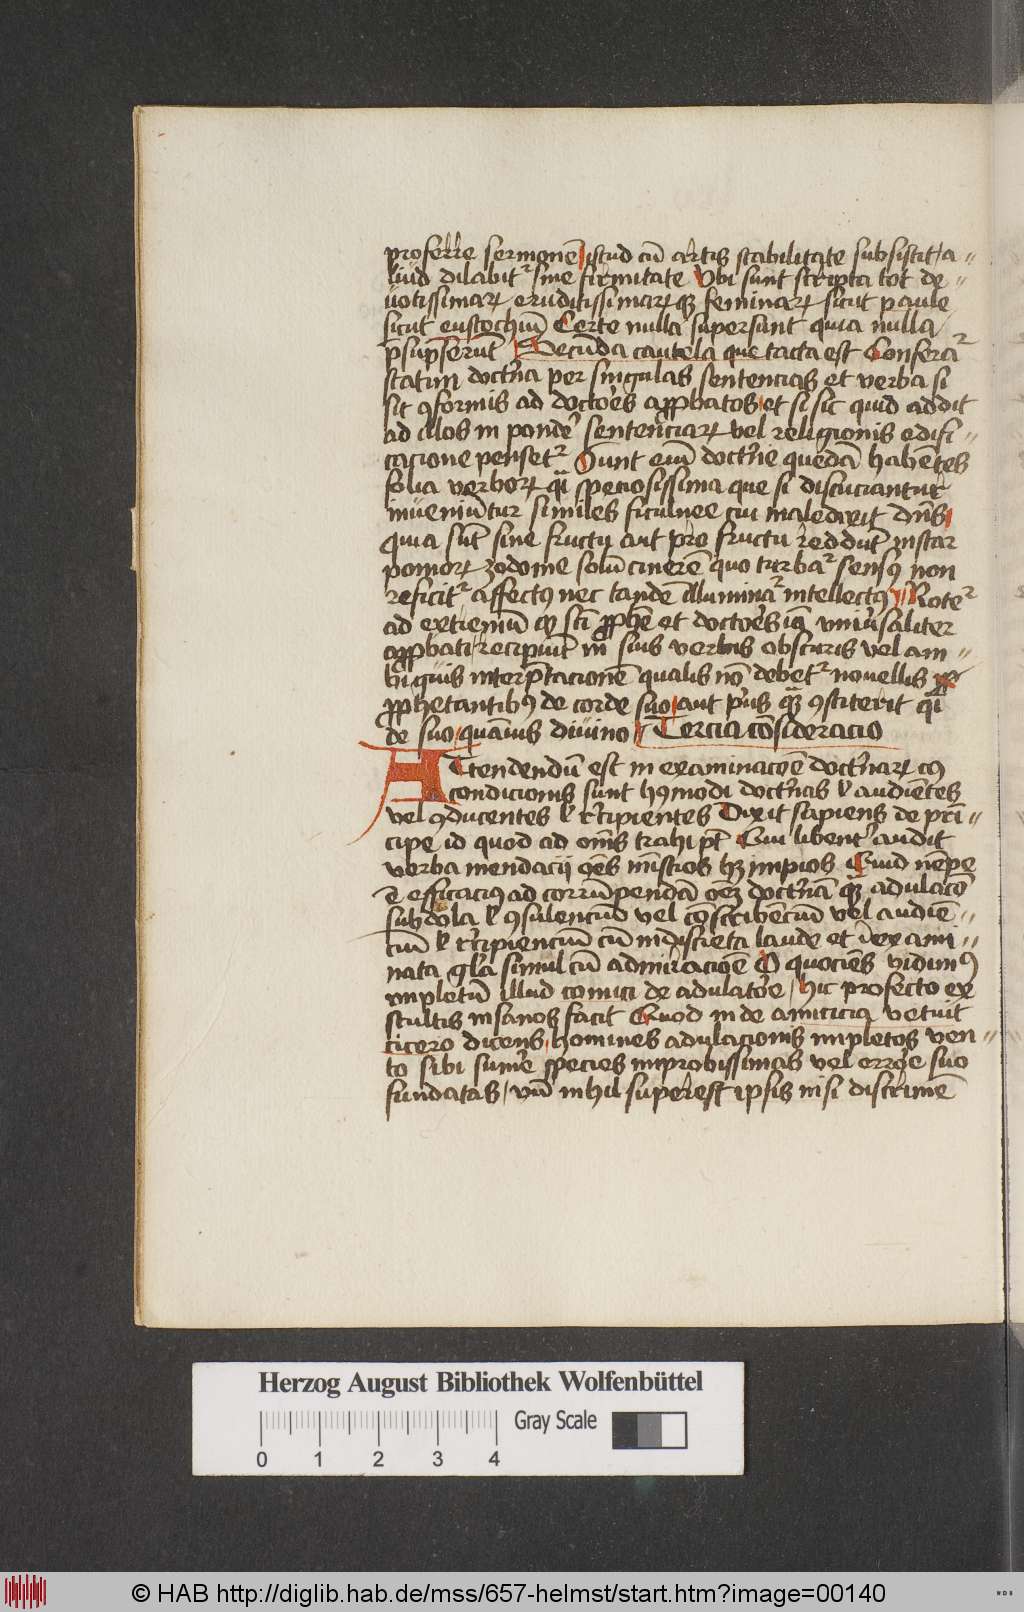 proferre sermonē istud cū artis stabilitate subsistit / a-
liud dilabitr sine firmitate Vbi sunt scripta tot de-
uotissimaꝝ eruditissimaꝝqꝫ feminaꝝ sicut paule
sicut eustochiū Certe nulla supersunt quia nulla
p̄sūpserūt Secūda cautela que tacta est Conferar
statim doctrīa per singulas sentencias et verba si
sit ꝯformis ad doctōes aꝓbatos et si sic quid addit
ad illos in pondē sentenciaꝝ vel religionis edifi-
cacione pensetr Sunt eīm doctrīe quedā habētes
folia verboꝝ qͣi speciosissima que si discuciantur
inueniūtur similes ficulnee cui maledixit dn̄s
quia sūt sine fructu aut pre fructu reddūt instar
pomoꝝ zodome solū cinerē quo turbar sensꝰ non
reficitr affectꝰ nec tandē illuminar intellectꝰ Noter
ad extremū qꝫ scī ꝓphē et doctoēs iā vniūsaliter
aꝓbati recipiūt in suis verbis obscuris vel am-
biguis interp̄tacionē qualis nō debetr nouellis
ꝓphetantibꝰ de corde suo aut prīus qͣꝫ ꝯstiterit qͣi
de suo quāuis diuino Tercia cōsideracio
Attendendū est in examinacōe doctrīaꝝ cꝰ
condicionis sunt hꝰmodi doctrīas ł audiētes
vel ꝯducentes ł rēcipientes Dixit sapiens de prī-
cipe id quod ad om̄s trahi pt̄ Qui libentr̄ audit
verba mendacij oēs mīstros hꝫ impios Quid nēpe
ē efficaciꝰ ad corrūpendā oēꝫ doctrīā qͣꝫ adulacō
subdola ł ꝯsulenciū vel ꝯscribēciū vel audiē-
ciū ł rēcipienciū cū indiscreta laude et īexami-
nata gl̄a simul cū admiracioē O quociēs vidimꝰ
impletū illud comici de adulatōe / hic profecto ex
stultis insanos facit Quod inde amiticia vetuit
cicero dicens homines adulacionis impletos ven-
to sibi sumē species improbissimas vel errōe suo
fundatas / vn̄ nihil superest ipsis nisi discrimē
Herzog August Bibliothek Wolfenbüttel
Gray Scale
0 1 2 3 4
© HAB http://diglib.hab.de/mss/657-helmst/start.htm?image=00140